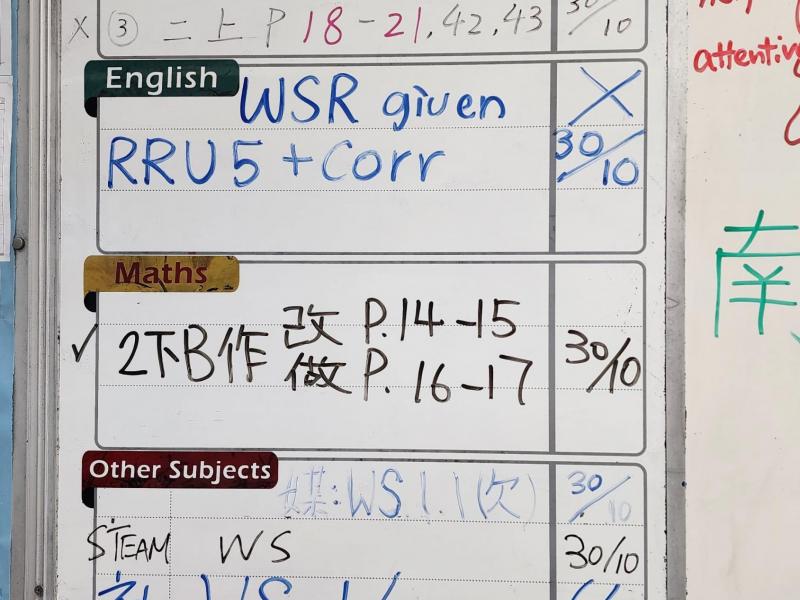 X ③ 二上 P 18-21, 42, 43 30/10
help
attenting
English
WSR given X
RRU5 + Corr 30/10
南
Maths
✓ 2下B作 改 P.14-15
做 P. 16-17 30/10
Other Subjects
媒:WS.1.1(欠) 30/10
STEAM WS 30/10
WS